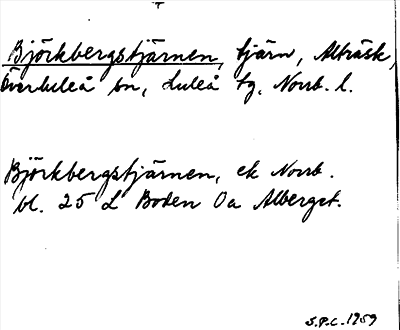 Björkbergstjärnen, tjärn, Alträsk,
Överluleå sn, Luleå tg, Norrb. l.
Björkbergstjärnen, ek Norrb.
bl. 25 L Boden Oa Alberget.
S.P.C. 1959